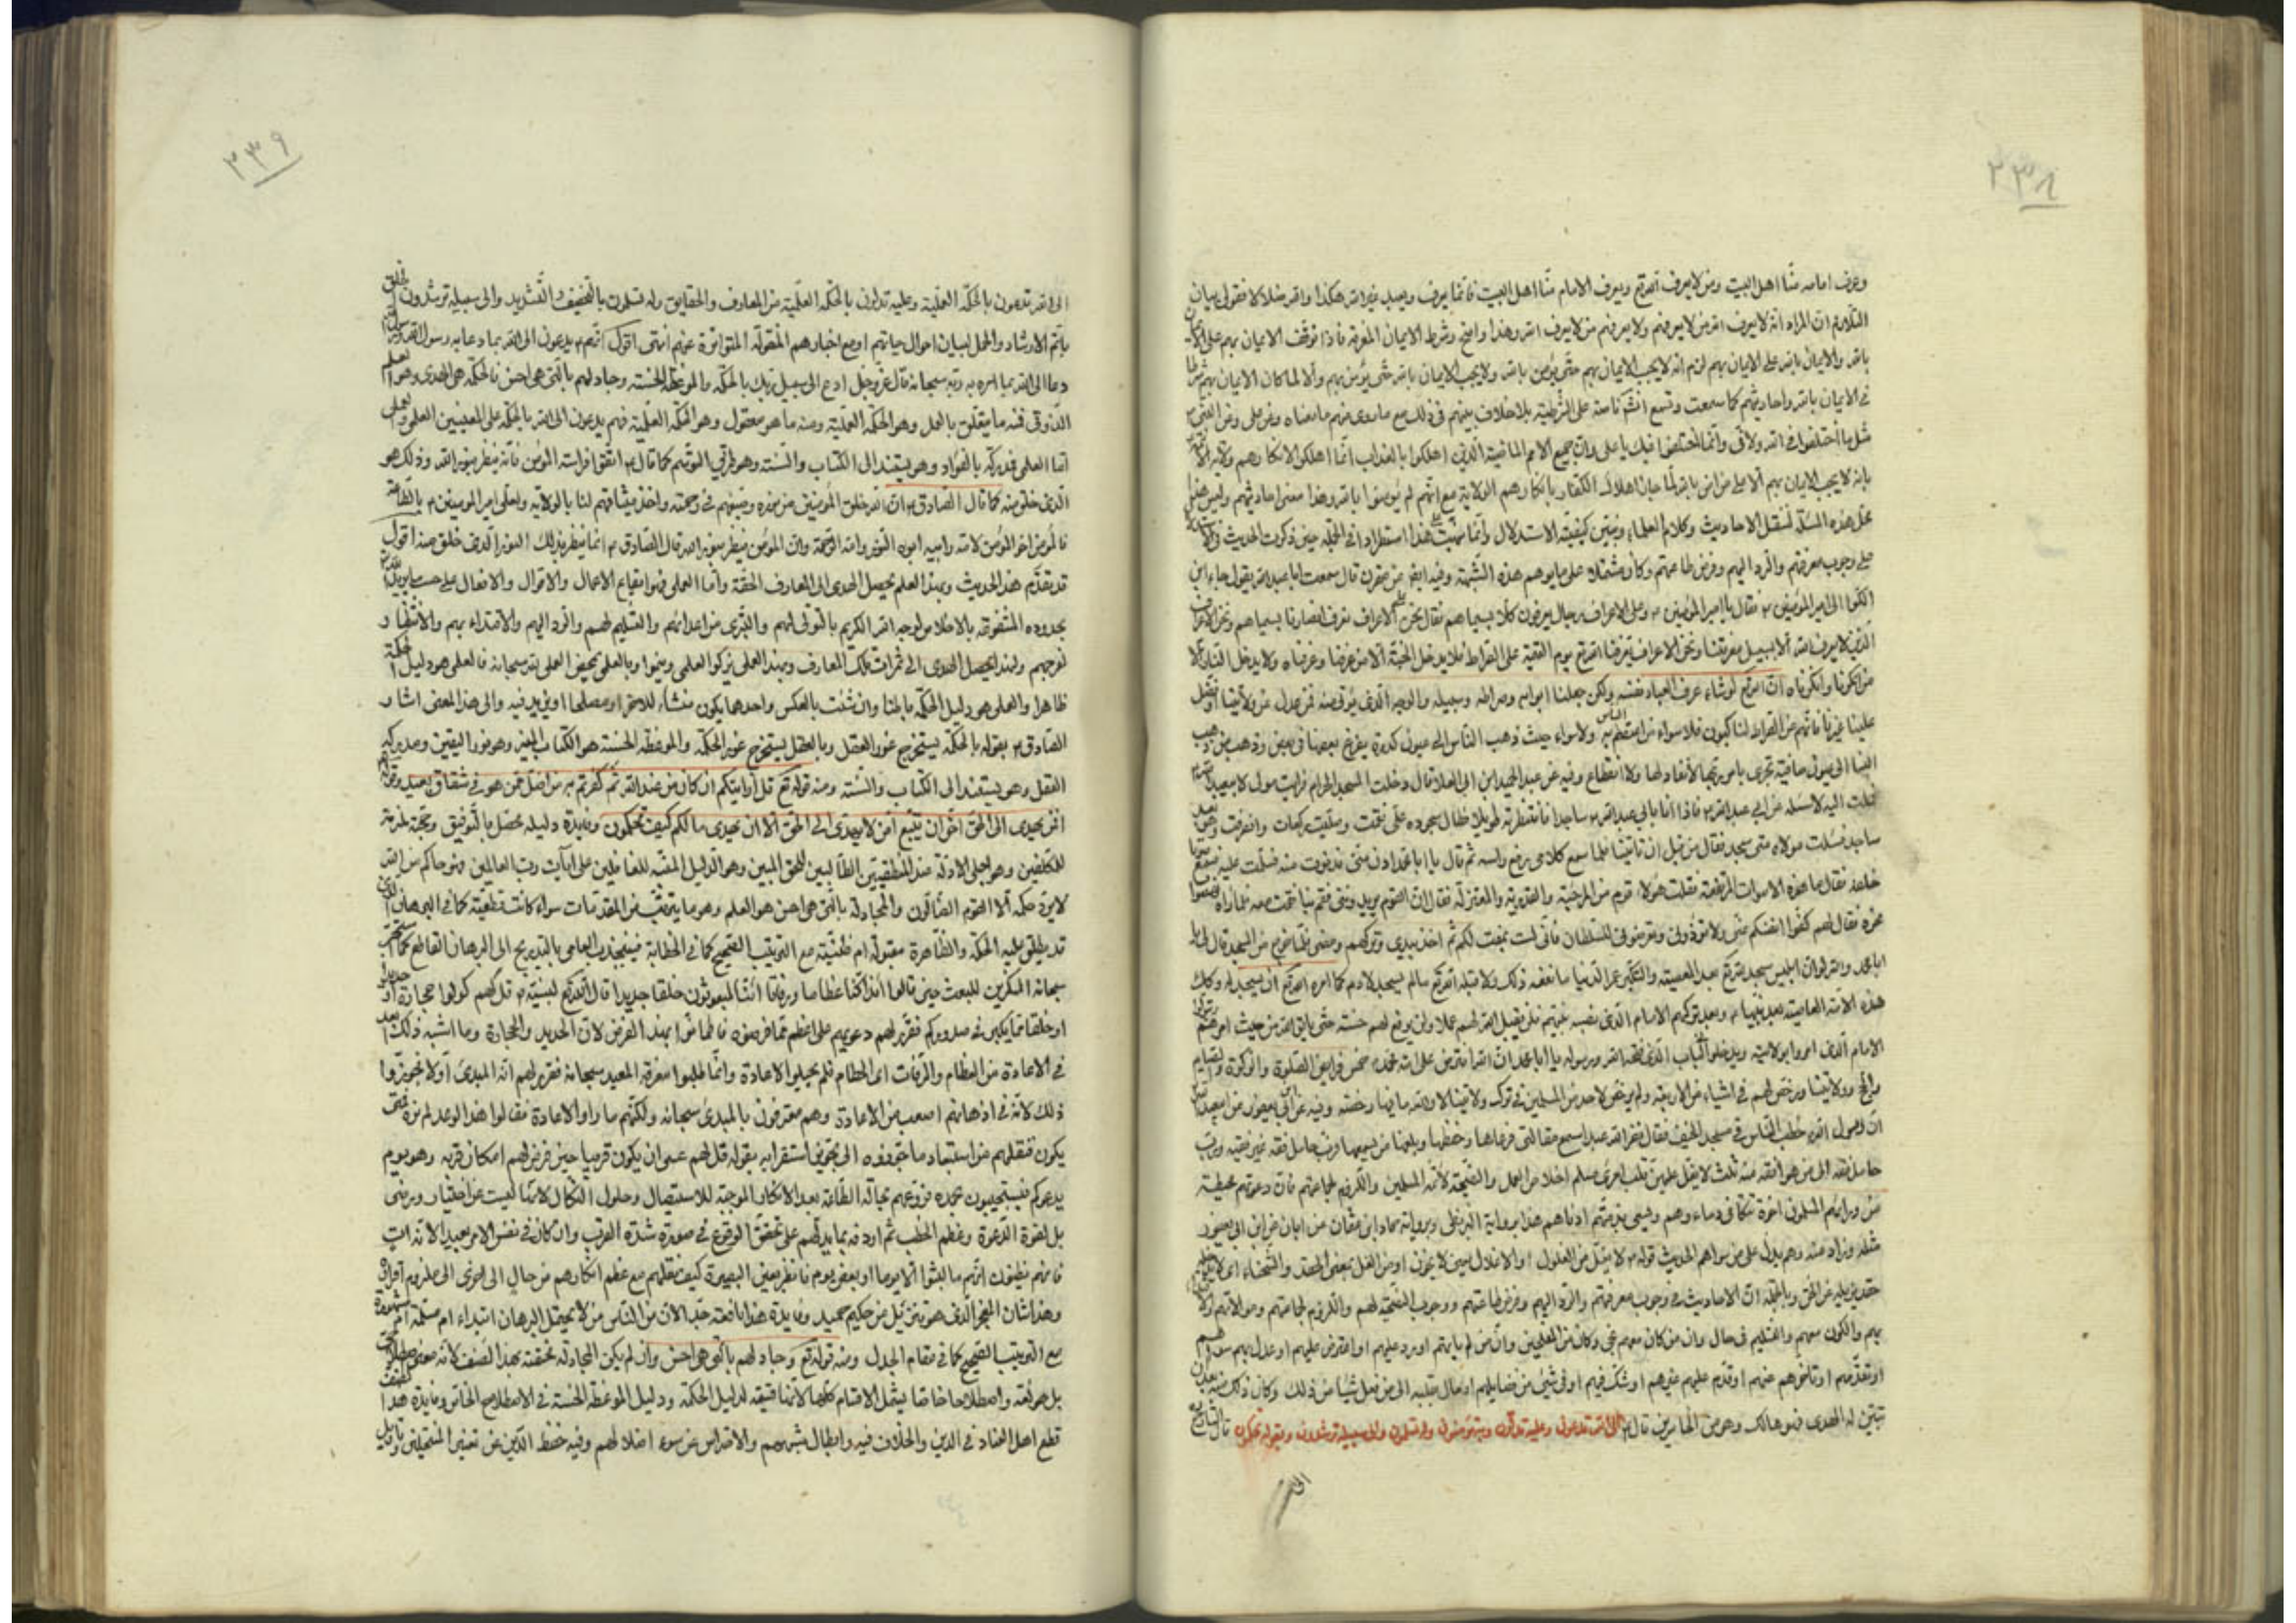 ٢٣٨
وعرف امامه منّا اهل البيت ومن لا يعرف اللّه تع ويعرف الامام منّا اهل البيت فانّما يعرف ويعبد غير اللّه هكذا واللّه ضلالا فقوله بيان
التلازم انّ المراد انّه لا يعرف اللّه من لا يعرفهم ولا يعرفهم من لا يعرف اللّه وهذا واضح وشرط الايمان المعرفة فاذا توقّف الايمان بهم على الايمان
باللّه والايمان باللّه على الايمان بهم لزم انه لا يجب الايمان بهم حتّى يؤمن باللّه ولا يجب الايمان باللّه حتّى يؤمن بهم والّا لما كان الايمان بهم شرطا
في الايمان باللّه واحاديثهم كما سمعت وتسمع انش ناصة على الشرطية بلا خلاف بينهم في ذلك مع ما روى عنهم ما معناه وعن على وعن النبى ص
مثل ما اختلفوا في اللّه ولا فىّ وانّما اختلفوا فيك يا على وانّ جميع الامم الماضية الّذين اهلكوا بالعذاب انّما اهلكوا لانكارهم ولاية الائمة
بانه لا يجب الايمان بهم الّا على من امن باللّه لما جاز اهلاك الكفار بانكارهم الولاية مع انّهم لم يؤمنوا باللّه وهذا معنى احاديثهم وليس هنا
محلّ هذه المسئلة لننقل الاحاديث وكلام العلماء ونبيّن كيفيّة الاستدلال وانّما نبّهت على هذا استطرادا في الجملة حين ذكرت الحديث
على وجوب معرفتهم والرّد اليهم وفرض طاعتهم وكان مشتملا على ما يوهم هذه الشّبهة وفيه ايضا عن مقرن قال سمعت ابا عبد اللّه يقول جاء ابن
الكوّا الى امير المؤمنين ع فقال يا امير المؤمنين ع وعلى الاعراف رجال يعرفون كلّا بسيماهم فقال نحن على الاعراف نعرف انصارنا بسيماهم ونحن الاعراف
الّذين لا يعرف اللّه الّا بسبيل معرفتنا ونحن الاعراف يعرّفنا اللّه تع يوم القيمة على الصّراط فلا يدخل الجنّة الّا من عرفنا وعرفناه ولا يدخل النّار الّا
من انكرنا وانكرناه انّ اللّه تع لو شاء عرف العباد نفسه ولكن جعلنا ابوابه وصراطه وسبيله والوجه الّذى يؤتى منه فمن عدل عن ولايتنا او فضّل
علينا غيرنا فانّهم عن الصّراط لناكبون فلا سواء من اعتصم النّاس به ولا سواء حيث ذهب النّاس الى عيون كدرة يفرغ بعضها في بعض وذهب من ذهب
الينا الى عيون صافية تجرى بامر ربّها لا نفاد لها ولا انقطاع وفيه عن عبد الحميد ابن ابى العلا قال دخلت المسجد الحرام فرايت مولى لابيعبد اللّه ع
فملت اليه لاسئله عن ابى عبد اللّه ع فاذا انا بابى عبد اللّه ع ساجدا فانتظرته طويلا فطال سجوده علىّ فقمت وصلّيت ركعات وانصرفت وهو بعد
ساجد فسئلت مولاه متى سجد فقال من قبل ان تاتينا فلما سمع كلامى رفع راسه ثم قال يا ابا محمّد ادن منّى فدنوت منه فسلّمت عليه فسمع صوتا
خلفه فقال ما هذه الاصوات المرتفعة فقلت هؤلاء قوم من المرجئة والقدرية والمعتزلة فقال انّ القوم يريدونى فقم بنا فقمت معه فلمّا راوه نهضوا
نحوه فقال لهم كفّوا انفسكم عنّى ولا تؤذونى وتعرضونى للسّلطان فانّى لست بمفت لكم ثم اخذ بيدى وتركهم ومضى فلمّا خرج من المسجد قال لى يا
ابا محمّد واللّه لو انّ ابليس سجد للّه تع بعد المعصية والتّكبّر عمر الدّنيا ما نفعه ذلك ولا قبله اللّه تع ما لم يسجد لادم كما امره اللّه تع ان يسجد له وكذلك
هذه الامّة العاصية بعد نبيّها ص وبعد تركهم الامام الّذى نصبه نبيّهم فلن يقبل اللّه لهم عملا ولن يرفع لهم حسنة حتّى ياتوا اللّه من حيث امرهم
الامام الّذى امروا بولايته ويدخلوا من الباب الّذى فتحه اللّه ورسوله يا ابا محمّد انّ اللّه افترض على امّة محمّد ص خمس فرايض الصّلوة والزّكوة والصّيام
والحجّ وولايتنا ورخّص لهم في اشياء من الاربعة ولم يرخّص لاحد من المسلمين في ترك ولايتنا لا واللّه ما فيها رخصة وفيه عن ابن ابى يعفور عن ابيعبد اللّه
انّ رسول اللّه ص خطب النّاس في مسجد الخيف فقال نضّر اللّه عبدا سمع مقالتى فوعاها وحفظها وبلّغها من لم يسمعها فربّ حامل فقه غير فقيه وربّ
حامل فقه الى من هو افقه منه ثلث لا يغلّ عليهنّ قلب امرئ مسلم اخلاص العمل والنّصيحة لائمّة المسلمين واللّزوم لجماعتهم فانّ دعوتهم محيطة
من ورائهم المسلمون اخوة تتكافى دماءوهم ويسعى بذمّتهم ادناهم هذا برواية البزنطى وبرواية حماد ابن عثمان عن ابان عن ابن ابى يعفور
مثله وزاد فيه وهم يد على من سواهم الحديث قوله ص لا يغلّ من الغلول او الاغلال بمعنى لا يخون او من الغلّ بمعنى الحقد والشّحناء اى لا يدخله
حقد يزيله عن الحقّ وبالجملة انّ الاحاديث في وجوب معرفتهم والرّدّ اليهم وفرض طاعتهم ووجوب النصيحة لهم واللّزوم لجماعتهم وموالاتهم
بهم والكون معهم والتّسليم في حال وان من كان معهم نجى وكان من المفلحين وانّ من لم ياتمّهم او ردّ عليهم او اعترض عليهم او عدل بهم سواهم
او تقدّمهم او تاخّرهم عنهم او قدّم عليهم غيرهم او شكّ فيهم او في شئ من فضايلهم او مال بقلبه الى من فعل شيئا من ذلك وكان ذلك منه بعد ان
تبيّن له الهدى فهو هالك وهو من الخاسرين قال ع الى اللّه تدعون وعليه تدلّون وبه تؤمنون وله تسلّمون والى سبيله ترشدون وبقوله تحكمون قال الشارح
٢٣٩
الى اللّه تدعون بالحكمة العمليّة وعليه تدلّون بالحكمة العلميّة من المعارف والحقايق وله تسلّمون بالتّخفيف والتّشديد والى سبيله ترشدون الخلق
باتمّ الارشاد والحمل لبيان احوال حياتهم او مع اخبارهم المنقولة المتواترة عنهم انتهى اقول انّهم ع يدعون الى اللّه بما دعا به رسول اللّه
دعا الى اللّه بما امره به ربّه سبحانه قال عزّ وجلّ ادع الى سبيل ربّك بالحكمة والموعظة الحسنة وجادلهم بالّتى هى احسن فالحكمة هى الهدى وهو العلم
الذّوقى فمنه ما يتعلّق بالعمل وهو الحكمة العمليّة ومنه ما هو معقول وهو الحكمة العلميّة فهم يدعون الى اللّه بالحكمة على المعنيين العلمى والعملى
امّا العلمى فيدركه بالفؤاد وهو يستند الى الكتاب والسّنة وهو طرق التوسّم كما قال ع اتّقوا فراسة المؤمن فانّه ينظر بنور اللّه وذلك هو
الّذى خلق منه كما قال الصّادق ع انّ اللّه خلق المؤمنين من نوره وصبغهم في رحمته واخذ ميثاقهم لنا بالولاية ولعلى امير المؤمنين ع
فالمؤمن اخو المؤمن لابيه وامّه ابوه النّور وامّه الرّحمة وانّ المؤمن ينظر بنور اللّه قال الصّادق ع انّما ينظر بذلك النّور الّذى خلق منه اقول
قد تقدّم هذا الحديث وبهذا العلم يحصل الهدى الى المعارف الحقّة وامّا العملى فهو ايقاع الاعمال والاقوال والافعال على حسب ما يريد اللّه
بحدوده المتفرّقة بالاخلاص لوجه اللّه الكريم بالتّولّى لهم والتّبرّى من اعدائهم والتسليم لهم والردّ اليهم والاقتداء بهم والانتظار
لفرجهم وبهذا يحصل الهدى الى ثمرات تلك المعارف وبهذا العملى يزكوا العلمى وينموا وبالعلمى يخلص العملى للّه سبحانه فالعلمى هو دليل الحكمة
ظاهرا والعملى هو دليل الحكمة باطنا وان شئت بالعكس واحدهما يكون منشاء للاخر او مصلحا او يزيد فيه والى هذا المعنى اشار
الصّادق ع بقوله بالحكمة يستخرج غور العقل وبالعقل يستخرج غور الحكمة والموعظة الحسنة هو الكتاب المنير وهو نور اليقين ومدركه
العقل وهو يستند الى الكتاب والسّنة ومنه قوله تع قل ارايتم ان كان من عند اللّه ثمّ كفرتم به من اضلّ ممّن هو في شقاق بعيد
افمن يهدى الى الحقّ احقّ ان يتّبع امّن لا يهدّى الّا ان يهدى ما لكم كيف تحكمون وفايدة دليله تحصل بالتّوفيق وحجّة ملزمة
للمكلّفين وهو اجلى الادلّة عند المنطقيّين الطّالبين للحق المبين وهو الدّليل المنبّه للغافلين على ايات ربّ العالمين وهو حاكم من اللّه
لا يردّ حكمه الّا القوم الضّالّون والمجادلة بالّتى هى احسن هو العلم وهو ما يترتّب من المقدّمات سواء كانت قطعيّة كما في البرهان الّذى
قد يطلق عليه الحكمة والظّاهرة مقبولة ام ظنيّة مع التّرتيب الصّحيح كما في الخطابة فينجذب العامى بالتدريج الى البرهان القاطع كما
سبحانه المنكرين للبعث حين قالوا ائذا كنّا عظاما ورفاتا ائنّا لمبعوثون خلقا جديدا قال اللّه تع لنبيّه ص قل لهم كونوا حجارة او حديدا
او خلقا ممّا يكبر في صدوركم فقرّر لهم دعويهم على اعظم ممّا فرضوه فاطمانّوا بهذا الفرض لانّ الحديد والحجارة وما اشبه ذلك ابعد
في الاعادة من العظام والرّفات اى الحطام فلم يحيلوا الاعادة وانّما طلبوا معرفة المعيد سبحانه فقرّر لهم انّه المبدئ اوّلا فجوّزوا
ذلك لانّه في اذهانهم اصعب من الاعادة وهم معترفون بالمبدئ سبحانه ولكنّهم ما راوا الاعادة فقالوا هذا الوعد لم نره فمتى
يكون فنقلهم من استبعاد ما جوّزوه الى تجويز استقرابه بقوله قل لهم عسى ان يكون قريبا حين فرض لهم امكان قربه وهو يوم
يدعوكم فتستجيبون بحمده فروّعهم بحالة الطّاعة بعد الانكار الموجبة للاستيصال وحلول النّكال لانّها ليست عن اختيار ورضى
بل لقوة الدّعوة وعظم الخطب ثم اردفه بما يدلّهم على تحقّق الوقوع في صورة شدّة القرب وان كان في نفس الامر بعيدا لانّه ات
فانهم يظنّون انّهم ما لبثوا الّا يوما او بعض يوم فانظر بعين البصيرة كيف نقلهم مع عظم انكارهم من حال الى اخرى الى ملزوم اقرارهم
وهذا شان المعجز الّذى هو تنزيل من حكيم حميد وفايدة هذا نافعة جدّا لانّ من النّاس من لا يحتمل البرهان ابتداء ام مسلّمة ام مشهورة
مع الترتيب الصّحيح كما في مقام الجدل ومنه قوله تع وجادلهم بالّتى هى احسن وان لم يكن المجادلة مختصّة بهذا الصّنف
بل هو لغة واصطلاحا خاصّا يشمل الاقسام كلّها لانّها قسيمة لدليل الحكمة ودليل الموعظة الحسنة في الاصطلاح الخاصّ وفايدة هذا
قطع اهل العناد في الدّين والخلاف فيه وابطال شبههم والاحتراس عن سوء اضلالهم وفيه حفظ الدّين عن تغيير المنتحلين وتاويل